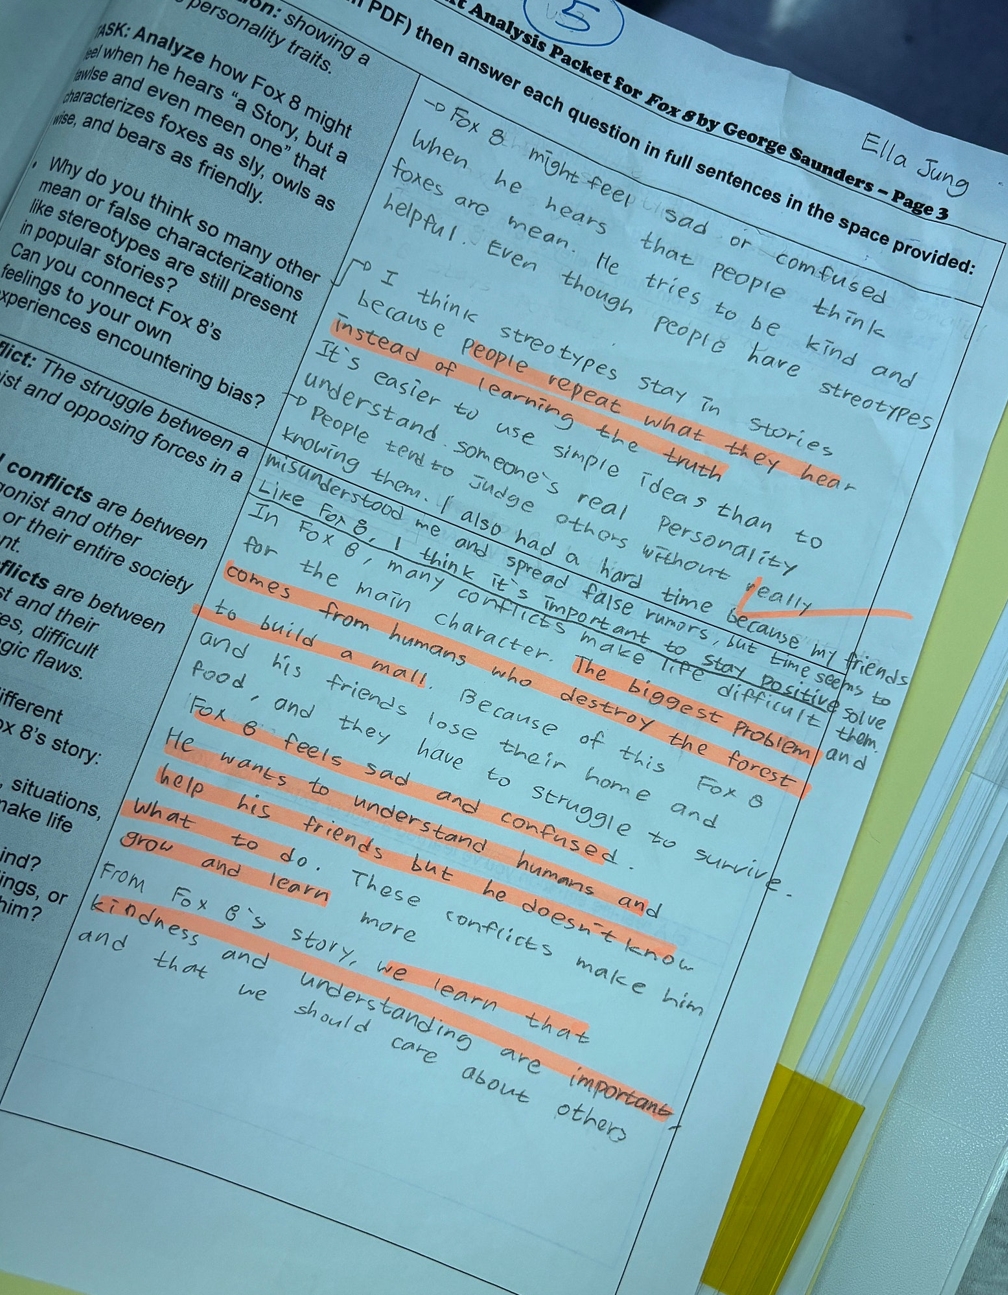 5
t Analysis Packet for Fox 8 by George Saunders – Page 3
Ella Jung
PDF) then answer each question in full sentences in the space provided:
on: showing a
personality traits.
TASK: Analyze how Fox 8 might
eel when he hears "a Story, but a
lawlse and even meen one" that
characterizes foxes as sly, owls as
wise, and bears as friendly.
• Why do you think so many other
mean or false characterizations
like stereotypes are still present
in popular stories?
Can you connect Fox 8's
feelings to your own
experiences encountering bias?
→ Fox 8 might feel sad or comfused
when he hears that people think
foxes are mean. He tries to be kind and
helpful. Even though people have streotypes
→ I think streotypes stay in stories
because people repeat what they hear
instead of learning the truth
It's easier to use simple ideas than to
understand someone's real personality
→ People tend to judge others without really
knowing them. I also had a hard time because my friends
misunderstood me and spread false rumors, but time seems to solve them
Like Fox 8, I think it's important to stay positive
flict: The struggle between a
ist and opposing forces in a
conflicts are between
gonist and other
or their entire society
nt.
flicts are between
st and their
es, difficult
gic flaws.
ifferent
ox 8's story:
, situations,
make life
ind?
ings, or
him?
In Fox 8, many conflicts make life difficult
for the main character. The biggest problem and
comes from humans who destroy the forest
to build a mall. Because of this Fox 8
and his friends lose their home and
food, and they have to struggle to survive.
Fox 8 feels sad and confused.
He wants to understand humans and
help his friends but he doesn't know
what to do. These conflicts make him
grow and learn more
From Fox 8's story, we learn that
kindness and understanding are important,
and that we should care about others